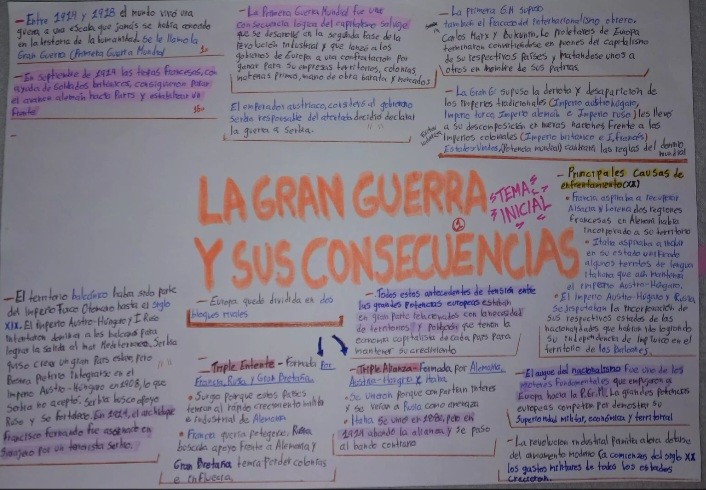 — Entre 1914 y 1918 el mundo vivió una
guerra a una escala que jamás se había conocido
en la historia de la humanidad. Se le llamó la
Gran Guerra (Primera Guerra Mundial
— En septiembre de 1914 las tropas francesas, con
ayuda de soldados británicos, consiguieron parar
el avance alemán hacia París y estabilizar un
Frente
— La Primera Guerra Mundial fue una
consecuencia lógica del capitalismo salvaje
que se desarrolló en la segunda fase de la
revolución industrial y que lanzó a los
gobiernos de Europa a una confrontación por
ganar para su empresas territorios, colonias,
materias primas, mano de obra barata y mercados
El emperador austriaco, consideró al gobierno
serbio responsable del atentado decidió declarar
la guerra a Serbia.
— La primera G.M supuso
también el fracaso del internacionalismo obrero.
Carlos Marx y Bakunin, Los proletarios de Europa
terminaron convirtiéndose en peones del capitalismo
de su respectivos países y matándose unos a
otros en nombre de sus patrias.
— La Gran G. supuso la derrota y desaparición de
los imperios tradicionales (Imperio austrohúngaro,
Imperio turco, Imperio alemán e Imperio ruso) les llevó
a su descomposición en nuevas naciones frente a los
Imperios coloniales (Imperio británico e I. francés)
Estados Unidos (Potencia mundial) cambiará las reglas del dominio
mundial
LA GRAN GUERRA
Y SUS CONSECUENCIAS
TEMA
INICIAL
1
— Principales Causas de
enfrentamiento (XX)
• Francia aspiraba a recuperar
Alsacia y Lorena dos regiones
francesas en Alemania había
incorporado a su territorio
• Italia aspiraba a incluir
en su estado unificado
algunos territos de lengua
italiana que aún mantenía
el imperio Austro-Húngaro.
• El Imperio Austro-Húngaro y Rusia
se disputaban la incorporación de
sus respectivos estados de las
nacionalidades que habían ido logrando
su independencia de Imp Turco en el
territorio de los Balcanes.
— El territorio balcánico había sido parte
del imperio Turco Otomano hasta el siglo
XIX. El imperio Austro-Húngaro y I. Ruso
intentaron dominar a los balcanes para
lograr la salida al mar Mediterráneo. Serbia
quiso crear un gran País eslavo, pero
Bosnia prefirió integrarse en el
Imperio Austro-Húngaro en 1908, lo que
Serbia no aceptó. Serbia buscó apoyo
Ruso y se fortalece. En 1914, el archiduque
Francisco Fernando fue asesinado en
Sarajevo por un terrorista Serbio.
— Europa quedó dividida en dos
bloques rivales
— Todos estos antecedentes de tensión entre
las grandes potencias europeas estaban
en gran parte relacionados con la necesidad
de territorios y poblados que tenían la
economía capitalista de cada País para
mantener su crecimiento
— Triple Entente - Formada por
Francia, Rusia y Gran Bretaña.
• Surgió porque estos países
temían al rápido crecimiento militar
e industrial de Alemania
• Francia quería protegerse, Rusia
buscaba apoyo frente a Alemania y
Gran Bretaña temía perder colonias
e influencia.
— Triple Alianza - Formada, por Alemania,
Austro-Hungría y Italia
• Se unieron porque compartían interes
y se veían a Rusia como amenaza
• Italia se unió en 1882, pero en
1914 abandonó la alianza y se pasó
al bando contrario
— El auge del nacionalismo fue uno de los
motores fundamentales que empujaron a
Europa hacia la P.G.M. Las grandes potencias
europeas competían por demostrar su
Superioridad militar, económica y territorial
— La revolución industrial permitió
del armamento moderno (a comienzos del siglo XX
los gastos militares de todos los estados
crecieron.